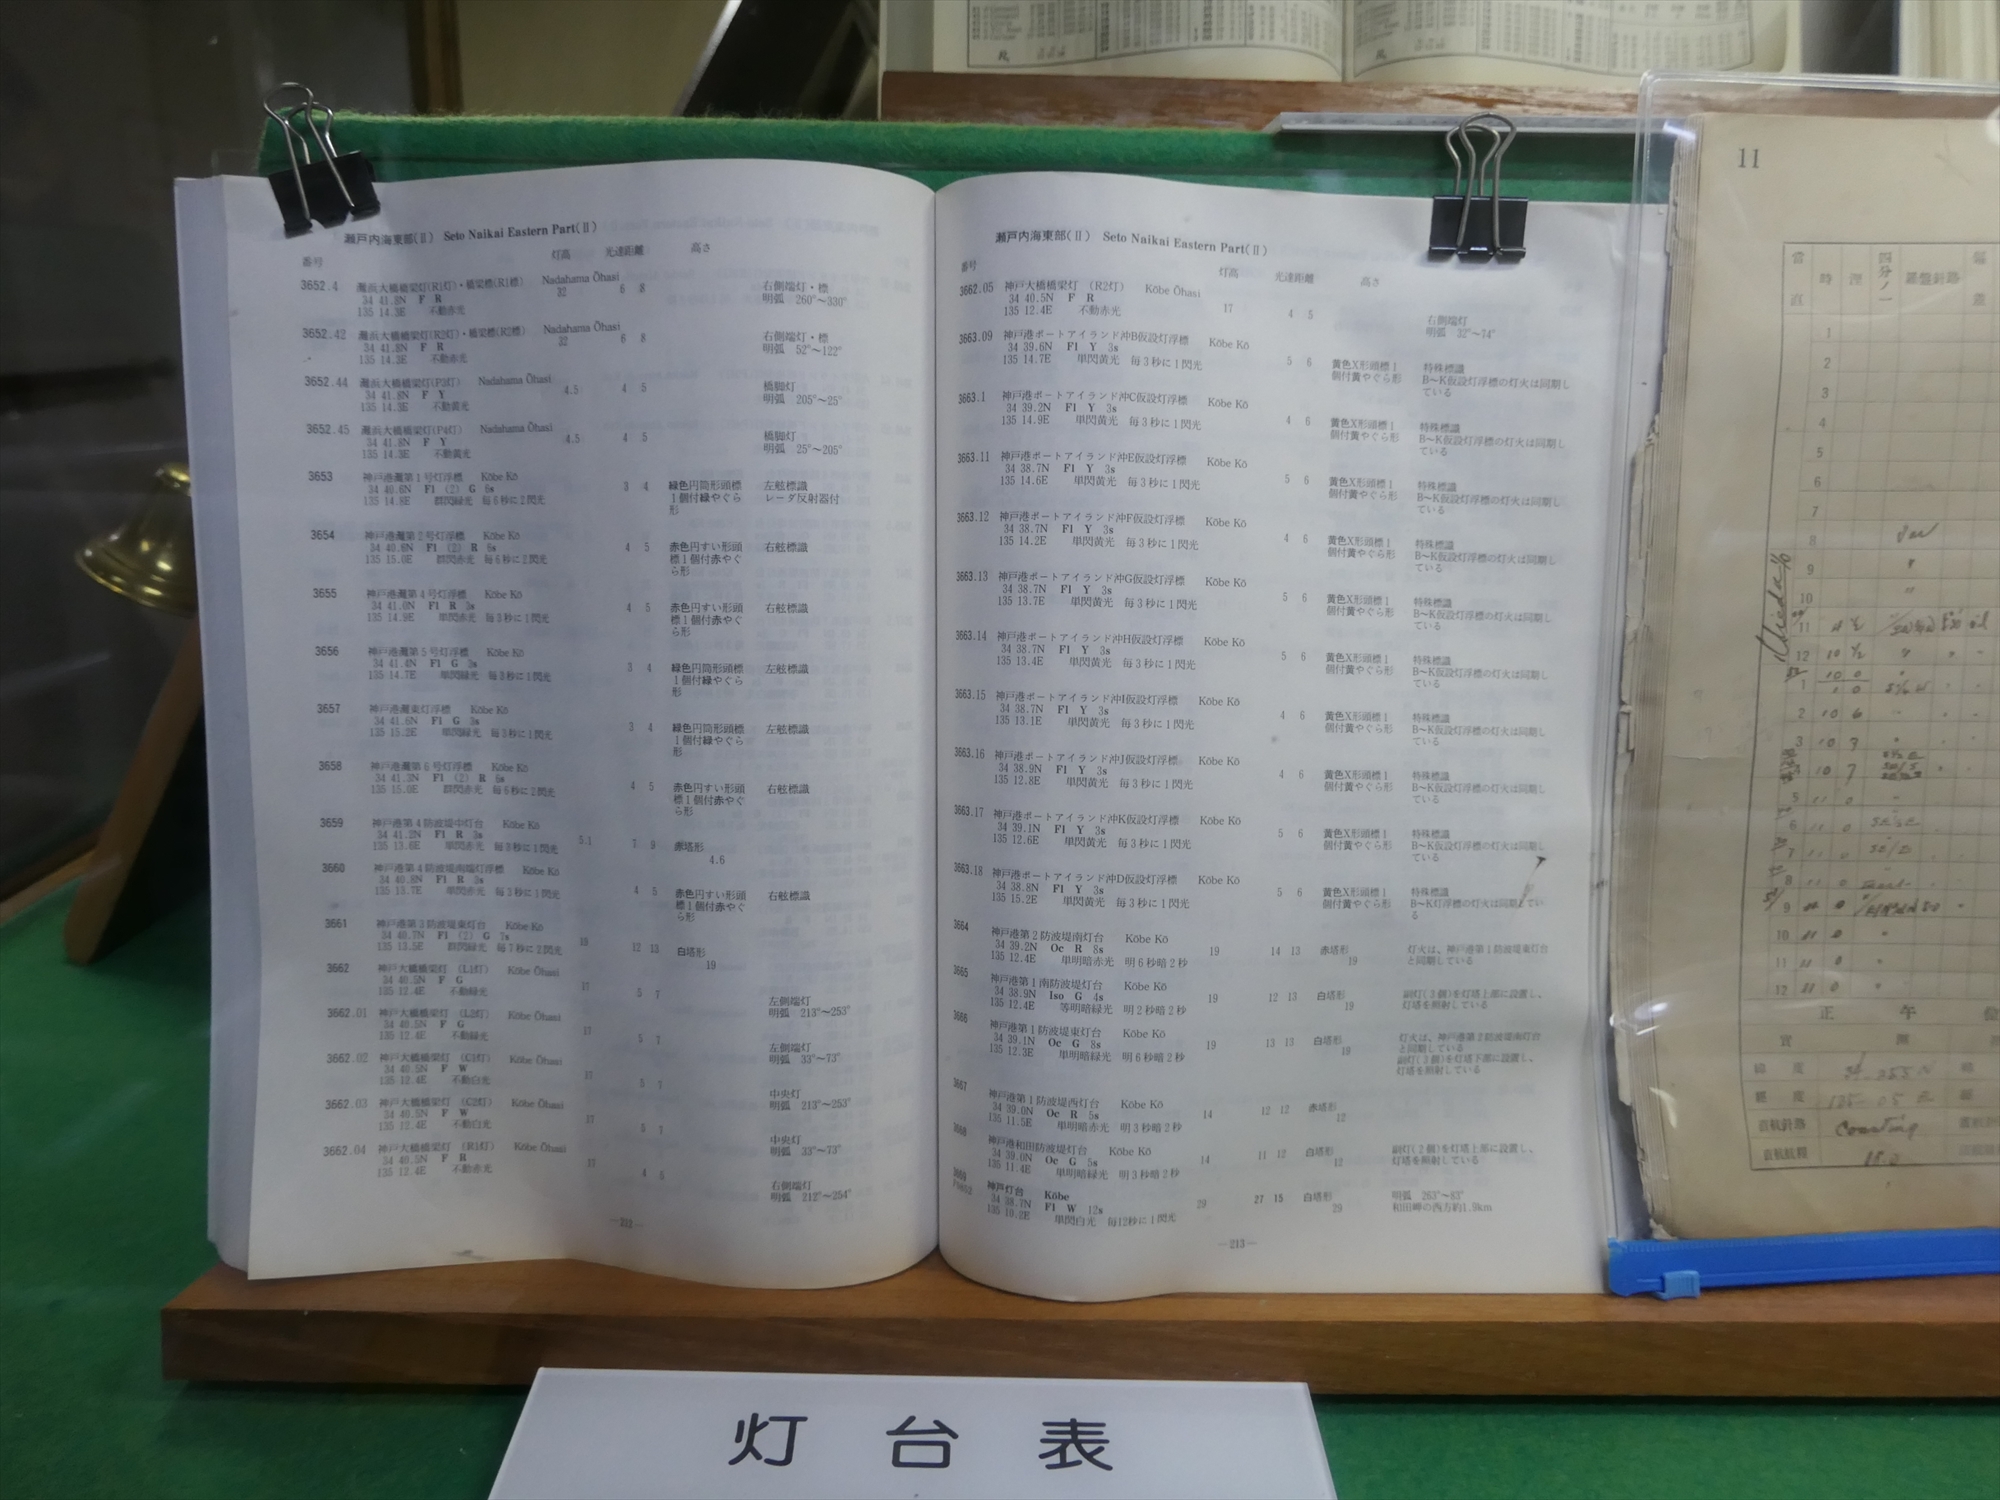 瀬戸内海東部(Ⅱ) Seto Naikai Eastern Part(Ⅱ)
番号 灯高 光達距離 高さ
3652.4 灘浜大橋橋梁灯(R1灯)・橋梁標(R1標) Nadahama Ōhasi
34 41.8N F R 32 6 8 右側端灯・標
135 14.3E 不動赤光 明弧 260°〜330°
3652.42 灘浜大橋橋梁灯(R2灯)・橋梁標(R2標) Nadahama Ōhasi
34 41.8N F R 32 6 8 右側端灯・標
135 14.3E 不動赤光 明弧 52°〜122°
3652.44 灘浜大橋橋梁灯(P3灯) Nadahama Ōhasi
34 41.8N F Y 4.5 4 5 橋脚灯
135 14.3E 不動黄光 明弧 205°〜25°
3652.45 灘浜大橋橋梁灯(P4灯) Nadahama Ōhasi
34 41.8N F Y 4.5 4 5 橋脚灯
135 14.3E 不動黄光 明弧 25°〜205°
3653 神戸港灘第1号灯浮標 Kōbe Kō
34 40.6N Fl (2) G 6s 3 4 緑色円筒形頭標 左舷標識
135 14.8E 群閃緑光 毎6秒に2閃光 1個付緑やぐら レーダ反射器付
形
3654 神戸港灘第2号灯浮標 Kōbe Kō
34 40.6N Fl (2) R 6s 4 5 赤色円すい形頭 右舷標識
135 15.0E 群閃赤光 毎6秒に2閃光 標1個付赤やぐ
ら形
3655 神戸港灘第4号灯浮標 Kōbe Kō
34 41.0N Fl R 3s 4 5 赤色円すい形頭 右舷標識
135 14.9E 単閃赤光 毎3秒に1閃光 標1個付赤やぐ
ら形
3656 神戸港灘第5号灯浮標 Kōbe Kō
34 41.4N Fl G 3s 3 4 緑色円筒形頭標 左舷標識
135 14.7E 単閃緑光 毎3秒に1閃光 1個付緑やぐら
形
3657 神戸港灘東灯浮標 Kōbe Kō
34 41.6N Fl G 3s 3 4 緑色円筒形頭標 左舷標識
135 15.2E 単閃緑光 毎3秒に1閃光 1個付緑やぐら
形
3658 神戸港灘第6号灯浮標 Kōbe Kō
34 41.3N Fl (2) R 6s 4 5 赤色円すい形頭 右舷標識
135 15.0E 群閃赤光 毎6秒に2閃光 標1個付赤やぐ
ら形
3659 神戸港第4防波堤中灯台 Kōbe Kō
34 41.2N Fl R 3s 5.1 7 9 赤塔形
135 13.6E 単閃赤光 毎3秒に1閃光 4.6
3660 神戸港第4防波堤南端灯浮標 Kōbe Kō
34 40.8N Fl R 3s 4 5 赤色円すい形頭 右舷標識
135 13.7E 単閃赤光 毎3秒に1閃光 標1個付赤やぐ
ら形
3661 神戸港第3防波堤東灯台 Kōbe Kō
34 40.7N Fl (2) G 7s 19 12 13 白塔形
135 13.5E 群閃緑光 毎7秒に2閃光 19
3662 神戸大橋橋梁灯 (L1灯) Kōbe Ōhasi
34 40.5N F G 17 5 7 左側端灯
135 12.4E 不動緑光 明弧 213°〜253°
3662.01 神戸大橋橋梁灯 (L2灯) Kōbe Ōhasi
34 40.5N F G 17 5 7 左側端灯
135 12.4E 不動緑光 明弧 33°〜73°
3662.02 神戸大橋橋梁灯 (C1灯) Kōbe Ōhasi
34 40.5N F W 17 5 7 中央灯
135 12.4E 不動白光 明弧 213°〜253°
3662.03 神戸大橋橋梁灯 (C2灯) Kōbe Ōhasi
34 40.5N F W 17 5 7 中央灯
135 12.4E 不動白光 明弧 33°〜73°
3662.04 神戸大橋橋梁灯 (R1灯) Kōbe Ōhasi
34 40.5N F R 17 4 5 右側端灯
135 12.4E 不動赤光 明弧 212°〜254°
—212—
瀬戸内海東部(Ⅱ) Seto Naikai Eastern Part(Ⅱ)
番号 灯高 光達距離 高さ
3662.05 神戸大橋橋梁灯 (R2灯) Kōbe Ōhasi
34 40.5N F R 17 4 5 右側端灯
135 12.4E 不動赤光 明弧 32°〜74°
3663.09 神戸港ポートアイランド沖B仮設灯浮標 Kōbe Kō
34 39.6N Fl Y 3s 5 6 黄色X形頭標1 特殊標識
135 14.7E 単閃黄光 毎3秒に1閃光 個付黄やぐら形 B〜K仮設灯浮標の灯火は同期し
ている
3663.1 神戸港ポートアイランド沖C仮設灯浮標 Kōbe Kō
34 39.2N Fl Y 3s 4 6 黄色X形頭標1 特殊標識
135 14.9E 単閃黄光 毎3秒に1閃光 個付黄やぐら形 B〜K仮設灯浮標の灯火は同期し
ている
3663.11 神戸港ポートアイランド沖E仮設灯浮標 Kōbe Kō
34 38.7N Fl Y 3s 5 6 黄色X形頭標1 特殊標識
135 14.6E 単閃黄光 毎3秒に1閃光 個付黄やぐら形 B〜K仮設灯浮標の灯火は同期し
ている
3663.12 神戸港ポートアイランド沖F仮設灯浮標 Kōbe Kō
34 38.7N Fl Y 3s 4 6 黄色X形頭標1 特殊標識
135 14.2E 単閃黄光 毎3秒に1閃光 個付黄やぐら形 B〜K仮設灯浮標の灯火は同期し
ている
3663.13 神戸港ポートアイランド沖G仮設灯浮標 Kōbe Kō
34 38.7N Fl Y 3s 5 6 黄色X形頭標1 特殊標識
135 13.7E 単閃黄光 毎3秒に1閃光 個付黄やぐら形 B〜K仮設灯浮標の灯火は同期し
ている
3663.14 神戸港ポートアイランド沖H仮設灯浮標 Kōbe Kō
34 38.7N Fl Y 3s 5 6 黄色X形頭標1 特殊標識
135 13.4E 単閃黄光 毎3秒に1閃光 個付黄やぐら形 B〜K仮設灯浮標の灯火は同期し
ている
3663.15 神戸港ポートアイランド沖I仮設灯浮標 Kōbe Kō
34 38.7N Fl Y 3s 4 6 黄色X形頭標1 特殊標識
135 13.1E 単閃黄光 毎3秒に1閃光 個付黄やぐら形 B〜K仮設灯浮標の灯火は同期し
ている
3663.16 神戸港ポートアイランド沖J仮設灯浮標 Kōbe Kō
34 38.9N Fl Y 3s 4 6 黄色X形頭標1 特殊標識
135 12.8E 単閃黄光 毎3秒に1閃光 個付黄やぐら形 B〜K仮設灯浮標の灯火は同期し
ている
3663.17 神戸港ポートアイランド沖K仮設灯浮標 Kōbe Kō
34 39.1N Fl Y 3s 5 6 黄色X形頭標1 特殊標識
135 12.6E 単閃黄光 毎3秒に1閃光 個付黄やぐら形 B〜K仮設灯浮標の灯火は同期し
ている
3663.18 神戸港ポートアイランド沖D仮設灯浮標 Kōbe Kō
34 38.8N Fl Y 3s 5 6 黄色X形頭標1 特殊標識
135 15.2E 単閃黄光 毎3秒に1閃光 個付黄やぐら形 B〜K灯浮標の灯火は同期してい
る
3664 神戸港第2防波堤南灯台 Kōbe Kō
34 39.2N Oc R 8s 19 14 13 赤塔形 灯火は、神戸港第1防波堤東灯台
135 12.4E 単明暗赤光 明6秒暗2秒 19 と同期している
3665 神戸港第1南防波堤灯台 Kōbe Kō
34 38.9N Iso G 4s 19 12 13 白塔形 副灯(3個)を灯塔上部に設置し、
135 12.4E 等明暗緑光 明2秒暗2秒 19 灯塔を照射している
3666 神戸港第1防波堤東灯台 Kōbe Kō
34 39.1N Oc G 8s 19 13 13 白塔形 灯火は、神戸港第2防波堤南灯台
135 12.3E 単明暗緑光 明6秒暗2秒 19 と同期している
副灯(3個)を灯塔下部に設置し、
灯塔を照射している
3667 神戸港第1防波堤西灯台 Kōbe Kō
34 39.0N Oc R 5s 14 12 12 赤塔形
135 11.5E 単明暗赤光 明3秒暗2秒 12
3668 神戸港和田防波堤灯台 Kōbe Kō
34 39.0N Oc G 5s 14 11 12 白塔形 副灯(2個)を灯塔上部に設置し、
135 11.4E 単明暗緑光 明3秒暗2秒 12 灯塔を照射している
3669 神戸灯台 Kōbe
34 38.7N Fl W 12s 29 27 15 白塔形 明弧 263°〜83°
135 10.2E 単閃白光 毎12秒に1閃光 29 和田岬の西方約1.9km
—213—
灯台表
11
當直 時 浬 四分ノ一 羅盤針路
1
2
3
4
5
6
7
8
9
10
11
12
正午位
實測
緯度
經度
直航針路 Coasting
直航航程